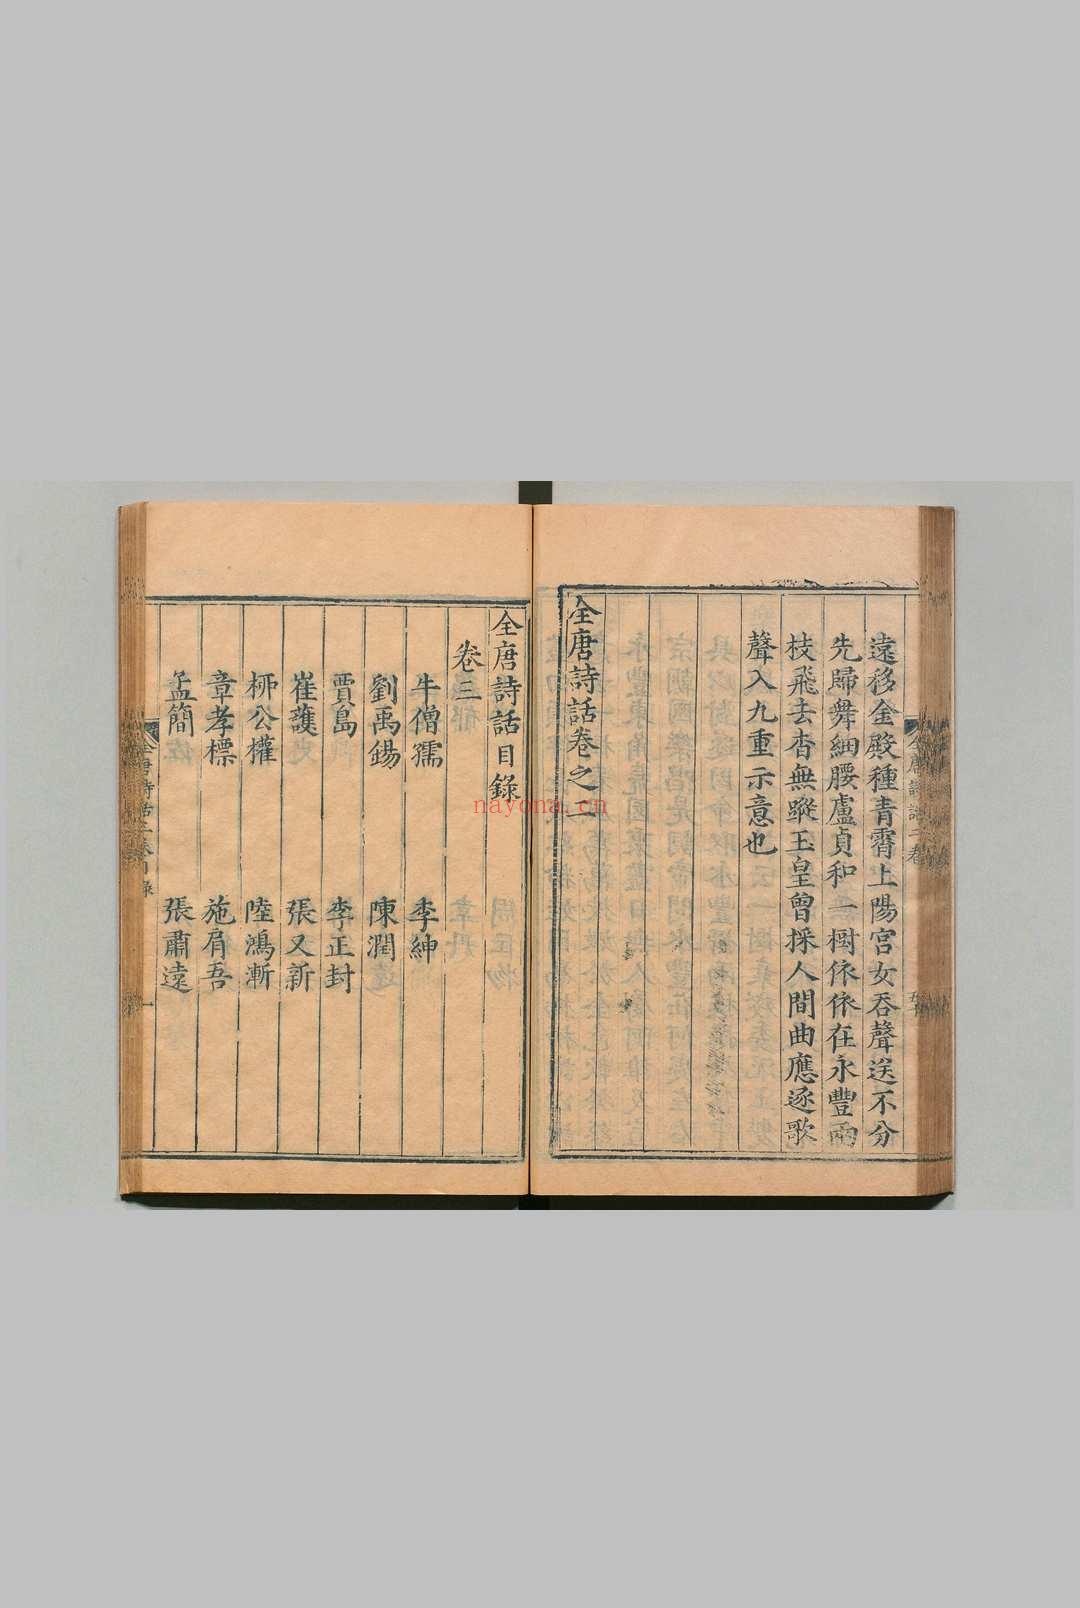 全唐詩話二卷
遠移金殿種青霄上陽宮女吞聲送不分
先歸舞細腰盧貞和一樹依依在永豐兩
枝飛去杳無蹤玉皇曾採人間曲應逐歌
聲入九重示意也
全唐詩話卷之二
全唐詩話目錄
卷三
牛僧孺 李紳
劉禹錫 陳潤
賈島 李正封
崔護 張又新
柳公權 陸鴻漸
章孝標 施肩吾
孟簡 張蕭遠
全唐詩話三卷目錄 一
nayona.cn